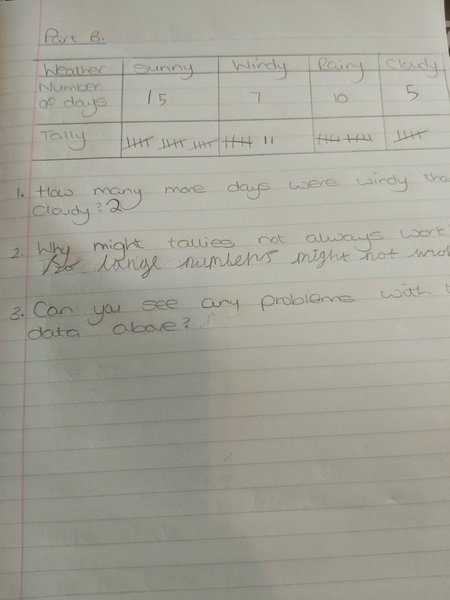 Part B.
Weather Sunny Windy Rainy Cloudy
Number of days 15 7 10 5
Tally 𝍸 𝍸 𝍸 𝍸 || 𝍸 𝍸 𝍸
1. How many more days were windy tha
cloudy? 2
2. Why might tallies not always work
So large numbers might not wo
3. Can you see any problems with
data above?